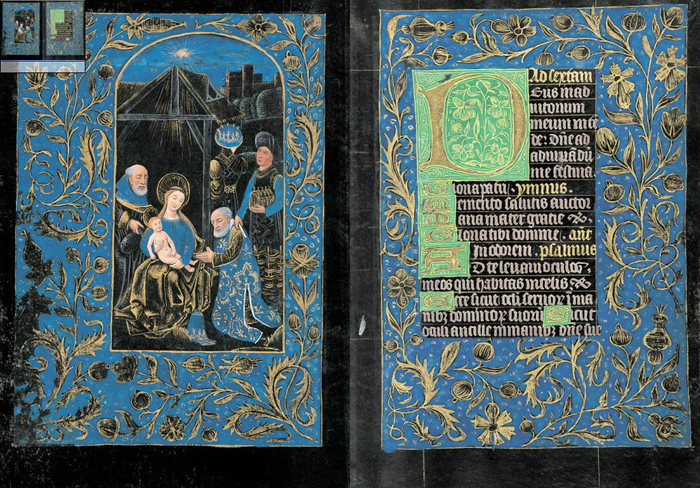 Ad sextam
Deus in ad
iutorium
meum intē
de: Dñe ad
adiuuādū
me festina.
Gloria patri. ymnus.
Memento salutis auctor
Maria mater gratie &c.
Gloria tibi domine. añt
In odorem. psalmus
AD te leuaui oculos
meos qui habitas in celis &c.
Ecce sicut oculi seruoꝝ in ma
nibꝫ dominoꝝ suoꝝ Sicut
oculi ancille in manibꝫ dñe sue